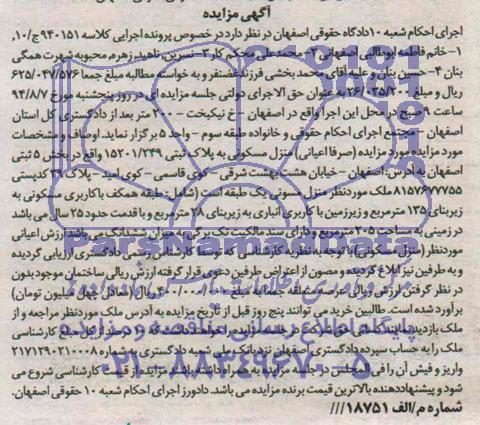 آگهی مزایده
اجرای احکام شعبه ۱۰ دادگاه حقوقی اصفهان در نظر دارد در خصوص پرونده اجرایی کلاسه ۹۴۰۱۵۱ ج/۱۰،
۱- خانم فاطمه ابوطالبی اصفهانی ۲- محمدعلی محکم کار ۳- نسرین، ناهید، زهره، محبوبه شهرت همگی
بنان ۴- حسین بنان و علیه آقای محمد بخشی فرزند غضنفر و به خواسته مطالبه مبلغ جمعا ۶۲۵/۰۴۷/۵۷۶
ریال و مبلغ ۲۶/۰۳۵/۲۰۰ به عنوان حق الاجرای دولتی جلسه مزایده ای در روز پنجشنبه مورخ ۹۴/۸/۷
ساعت ۹ صبح در محل این اجرا واقع در اصفهان - خ نیکبخت - ۲۰۰ متر بعد از دادگستری کل استان
اصفهان - مجتمع اجرای احکام حقوقی و خانواده طبقه سوم - واحد ۵ برگزار نماید. اوصاف و مشخصات
مورد مزایده مورد مزایده (صرفا اعیانی) منزل مسکونی به پلاک ثبتی ۱۵۲۰۱/۲۴۹ واقع در بخش ۵ ثبتی
اصفهان به آدرس: اصفهان - خیابان هشت بهشت شرقی - کوی قاسمی - کوی امید - پلاک ۳۹ کدپستی
۸۱۵۷۶۷۷۷۵۵ ملک موردنظر منزل مسکونی یک طبقه است (شامل: طبقه همکف با کاربری مسکونی به
زیربنای ۱۳۵ مترمربع و زیرزمین با کاربری انباری به زیربنای ۲۸ مترمربع و با قدمت حدود ۲۵ سال می باشد
در زمینی به مساحت ۲۰۵ مترمربع و دارای سند مالکیت تک برگی به میزان ششدانگ می باشد. ارزش اعیانی
موردنظر (منزل مسکونی) با توجه به نظریه کارشناسی که توسط کارشناس رسمی دادگستری ارزیابی گردیده
و به طرفین نیز ابلاغ گردیده و مصون از اعتراض طرفین دعوی قرار گرفته ارزش ریالی ساختمان موجود بدون
در نظر گرفتن ارزش ریالی عرصه متعلقه جمعا به مبلغ ۴۰۰/۰۰۰/۰۰۰ ریال (معادل چهل میلیون تومان)
برآورد شده است. طالبین خرید می توانند پنج روز قبل از تاریخ مزایده به آدرس ملک موردنظر مراجعه و از
ملک بازدید نمایند. کسانی حق شرکت در جلسه مزایده را خواهند داشت که ده درصد از کل مبلغ کارشناسی
ملک را به حساب سپرده دادگستری اصفهان نزد بانک ملی شعبه دادگستری به شماره ۲۱۷۱۲۹۰۲۱۰۰۰۸
واریز و فیش آن را فی المجلس در جلسه مزایده به همراه داشته باشند. مزایده از قیمت کارشناسی شروع می
شود و پیشنهاددهنده بالاترین قیمت برنده مزایده می باشد. دادورز اجرای احکام شعبه ۱۰ حقوقی اصفهان.
شماره م/الف ۱۸۷۵۱///
ParsNamadData
پایگاه اطلاع رسانی مناقصه و مزایده
۰۲۱-۸۸۳۴۹۶۷۰-۵